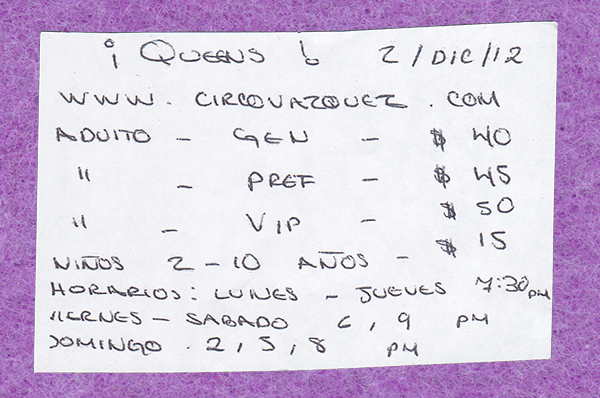 ¡ QUEENS ! 2/DIC/12
WWW.CIRCOVAZQUEZ.COM
ADULTO - GEN - $ 40
" - PREF - $ 45
" - VIP - $ 50
NIÑOS 2-10 AÑOS - $ 15
HORARIOS: LUNES - JUEVES 7:30 PM
VIERNES - SABADO 6, 9 PM
DOMINGO . 2, 5, 8 PM